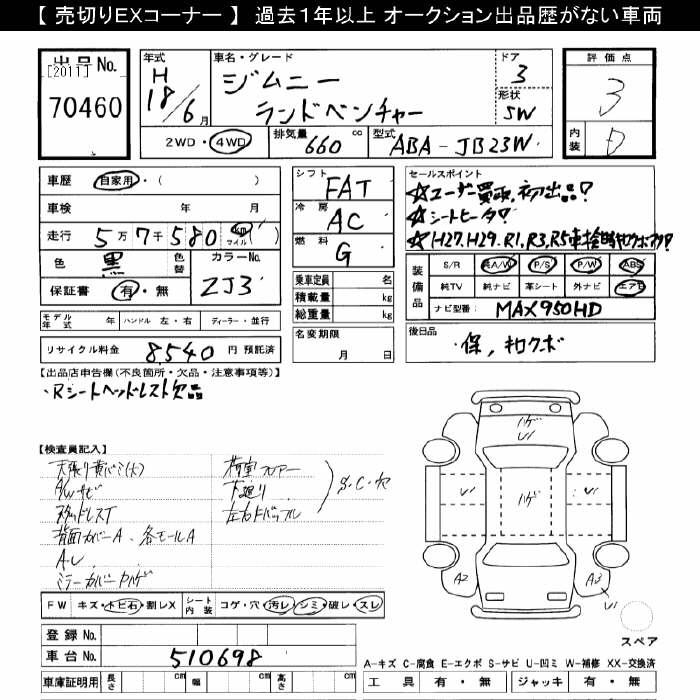 【 売切りEXコーナー 】 過去１年以上 オークション出品歴がない車両
出品No.
[2011]
70460
年式
H
18/6月
車名・グレード
ジムニー
ランドベンチャー
ドア
3
形状
SW
2WD・4WD
排気量 660 cc
型式 ABA-JB23W
評価点
3
内装 D
車歴 自家用・( )
車検 年 月
走行 5万7千580 km マイル ( )
色 黒 色替 カラーNo.
保証書 有・無 ZJ3
モデル年式 年 ハンドル 左・右 ディーラー・並行
リサイクル料金 8,540 円 預託済
シフト FAT
冷房 AC
燃料 G
乗車定員 名
積載量 kg
総重量 kg
名変期限
月 日
セールスポイント
☆ユーザー買取、初出品!
☆シートヒーター!
☆H27.H29.R1.R3.R5車検時キロクボアリ!
装備品
S/R 純A/W P/S P/W ABS
純TV 純ナビ 革シート 外ナビ エアB
ナビ型番: MAX950HD
後日品
・保、キロクボ
【出品店申告欄(不良箇所・欠品・注意事項等)】
・Rシートヘッドレスト欠品
【検査員記入】
天張り黄バミ(大)
A/Wサビ
背面カバーA、各モールA
A.U
ミラーカバーハゲ
荷室フロアー
下廻り
S.C.穴
FW キズ・トビ石・割レX
シート内装 コゲ・穴・汚レ・シミ・破レ・スレ
登録No.
車台No. 510698
車庫証明用 長さ cm 幅 cm 高さ cm
ハゲ
U
U
ハゲ
U
A2
A3
U
スペア
A-キズ C-腐食 E-エクボ S-サビ U-凹ミ W-補修 XX-交換済
工具 有・無 ジャッキ 有・無